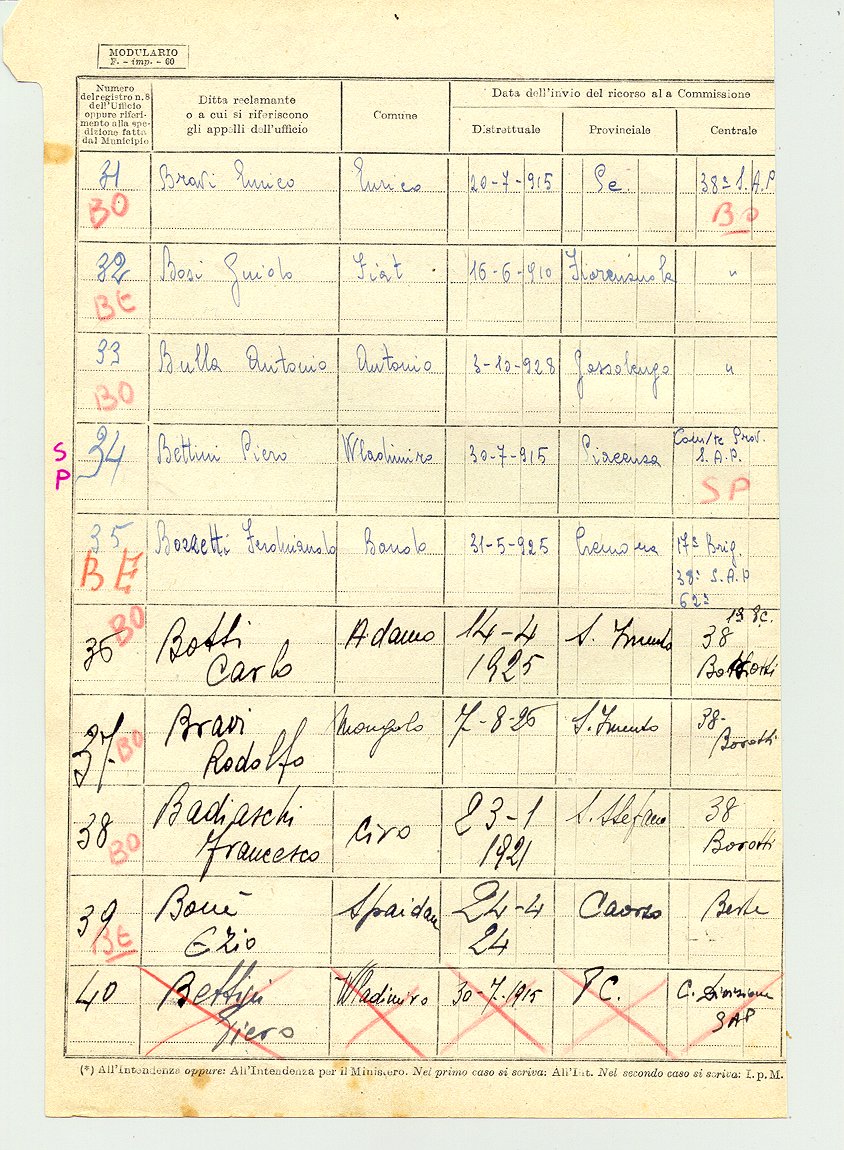 MODULARIO
F. - imp. - 60
Numero del registro n. 8 dell'Ufficio oppure riferimento alla spedizione fatta dal Municipio
Ditta reclamante o a cui si riferiscono gli appelli dell'ufficio
Comune
Data dell'invio del ricorso al a Commissione
Distrettuale Provinciale Centrale
31 Bravi Enrico Enrico 20-7-915 Pc. 38ª S.A.P
BO BO
32 Bosi Guido Fiat 16-6-910 Fiorenzuola "
BE
33 Bulla Antonio Antonio 3-10-928 Gossolengo "
BO
S P 34 Bettini Piero Wladimiro 30-7-915 Piacenza Com/te Prov. S.A.P.
SP
35 Bozzetti Ferdinando Bando 31-5-925 Cremona 17ª Brig.
BE 38ª S.A.P
62ª
BO 13 Pc.
36 Botti Adamo 14-4 S. Imento 38
Carlo 1925
37 Bravi Mongolo 7-8-26 S. Imento 38-
BO Rodolfo Borotti
38 Badiaschi Ciro 23-1 S. Stefano 38
BO Francesco 1921 Borotti
39 Bonè Spaidan 24-4 Caorso Berte
BE Ezio 24
40 Bettini Wladimiro 30-7-1915 PC. C. Divisione
Piero SAP
(*) All'Intendenza oppure: All'Intendenza per il Ministero. Nel primo caso si scriva: All'Int. Nel secondo caso si scriva: I. p. M.